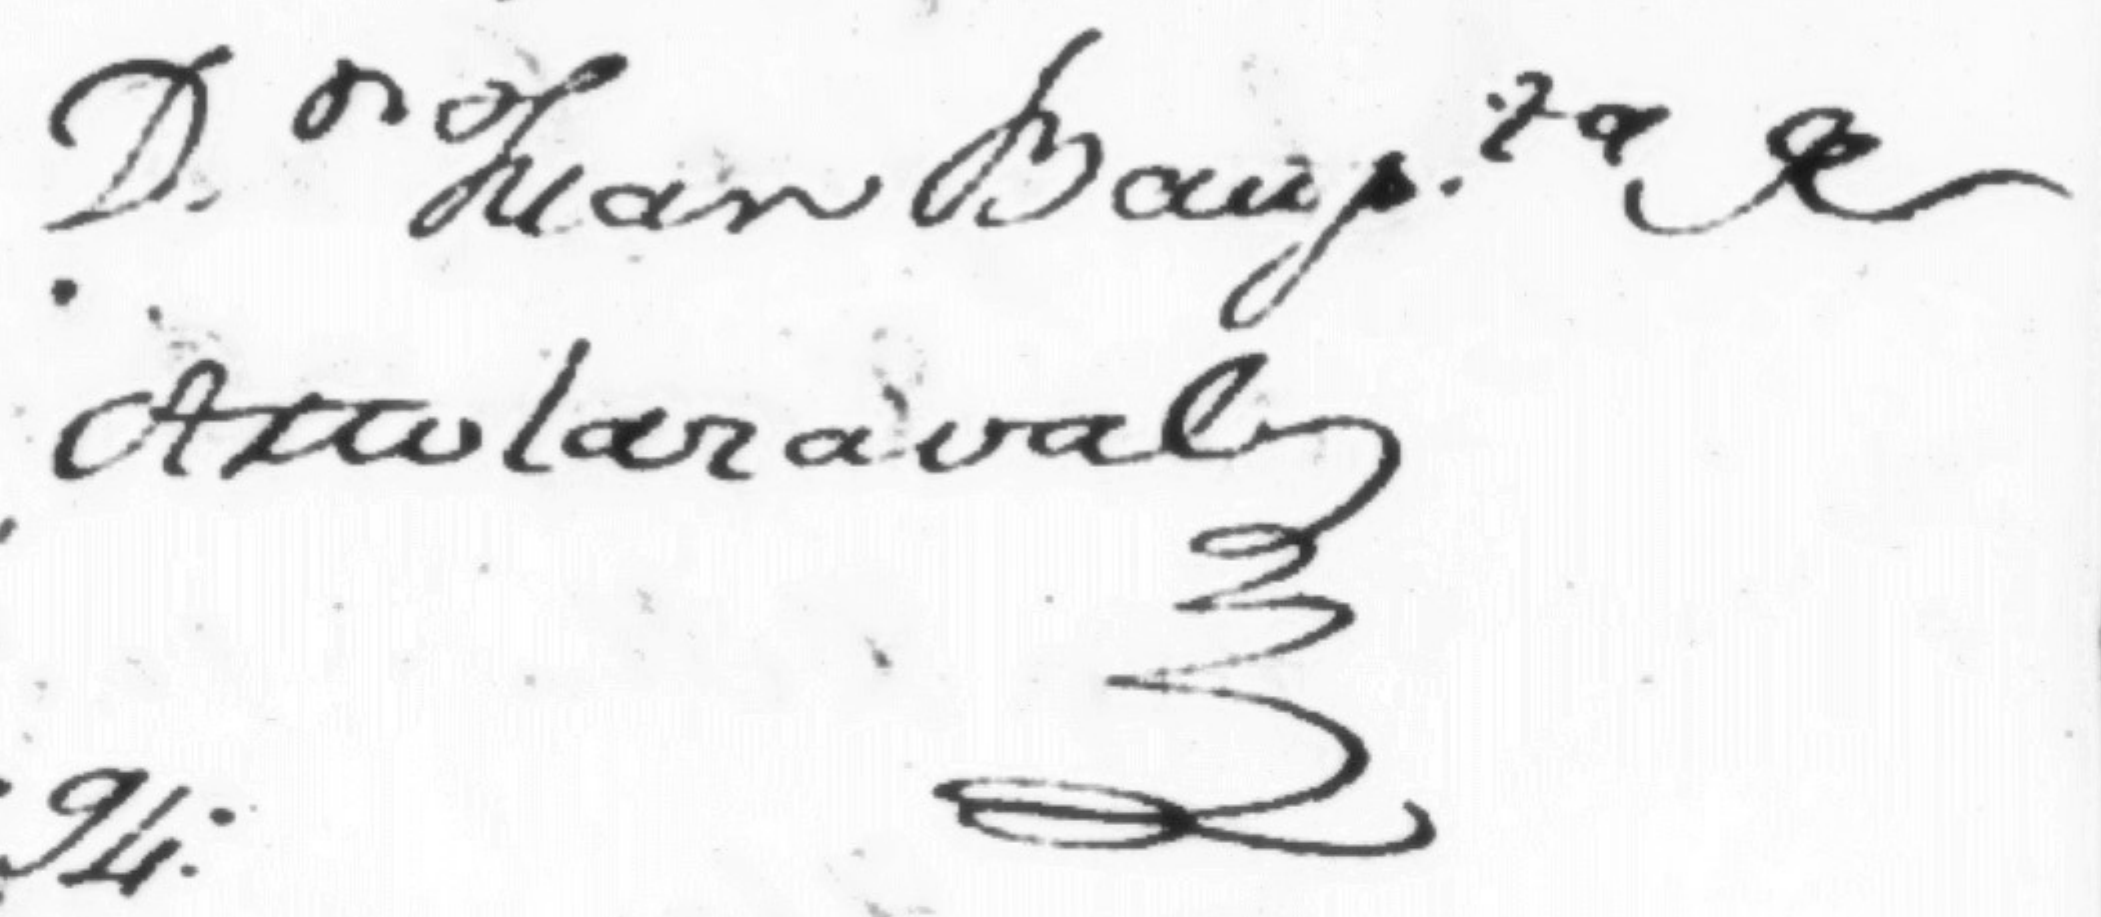 D.ⁿ Juan Baup.ta de
Attolaraval
94.